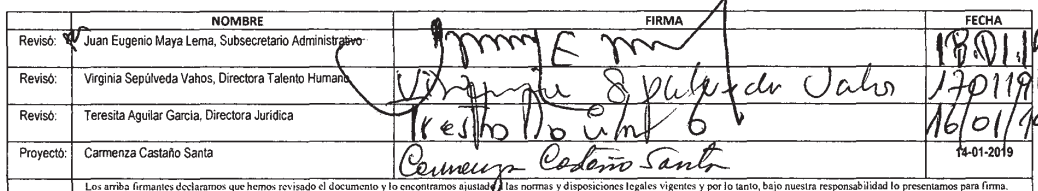 NOMBRE FIRMA FECHA
Revisó: Juan Eugenio Maya Lema, Subsecretario Administrativo 18.01.1
Revisó: Virginia Sepúlveda Vahos, Directora Talento Humano Virginia Sepulveda Vahos 170119
Revisó: Teresita Aguilar Garcia, Directora Jurídica 16/01/19
Proyectó: Carmenza Castaño Santa Carmenza Castaño Santa 14-01-2019
Los arriba firmantes declaramos que hemos revisado el documento y lo encontramos ajustado a las normas y disposiciones legales vigentes y por lo tanto, bajo nuestra responsabilidad lo presentamos para firma.